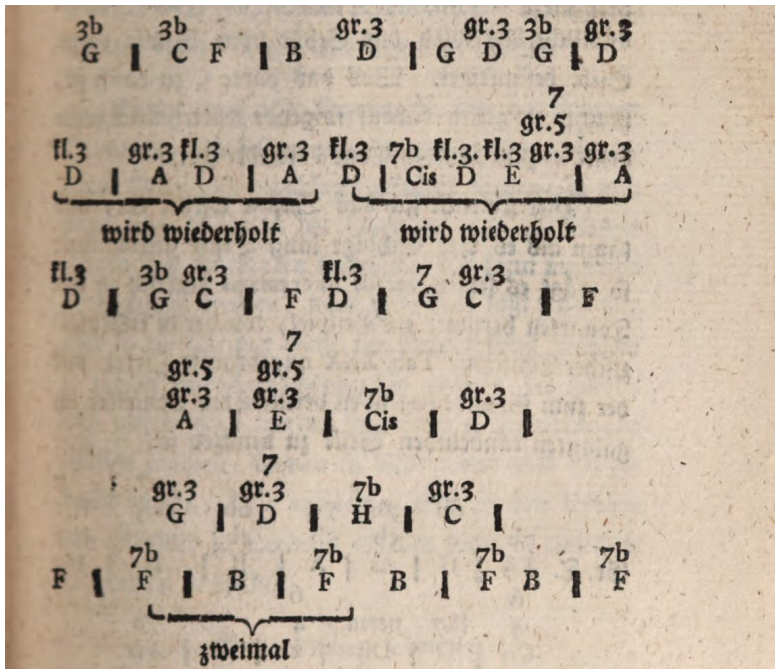 3b 3b gr.3 gr.3 3b gr.3
G | C F | B D | G D G | D
7
gr.5
kl.3 gr.3 kl.3 gr.3 kl.3 7b kl.3. kl.3 gr.3 gr.3
D | A D | A D | Cis D E | A
wird wiederholt wird wiederholt
kl.3 3b gr.3 kl.3 7 gr.3
D | G C | F D | G C | F
7
gr.5 gr.5
gr.3 gr.3 7b gr.3
A | E | Cis | D |
7
gr.3 gr.3 7b gr.3
G | D | H | C |
7b 7b 7b 7b
F | F | B | F B | F B | F
zweimal